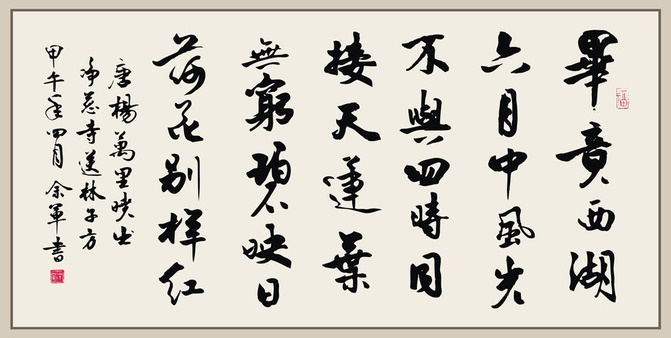 畢竟西湖
六月中風光
不與四時同
接天蓮葉
無窮碧映日
荷花别样红
唐楊萬里曉出
净慈寺送林子方
甲午年四月余軍書